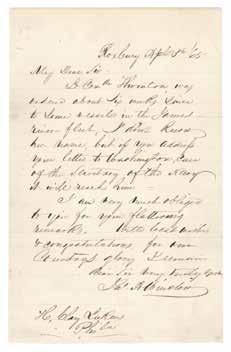 Roxbury Apl 8th /65
My Dear Sir -
Lt Comdr Thornton was
ordered about six weeks since
to some vessels in the James
river fleet, I dont know
her name, but if you address
your letter to Washington, care
of the Secretary of the Navy
it will reach him -
I am very much obliged
to you for your flattering
remarks. With best wishes
& congratulations for our
Countrys glory I remain
Dear Sir very truly yours
Jno A Winslow
H. Clay
Phila